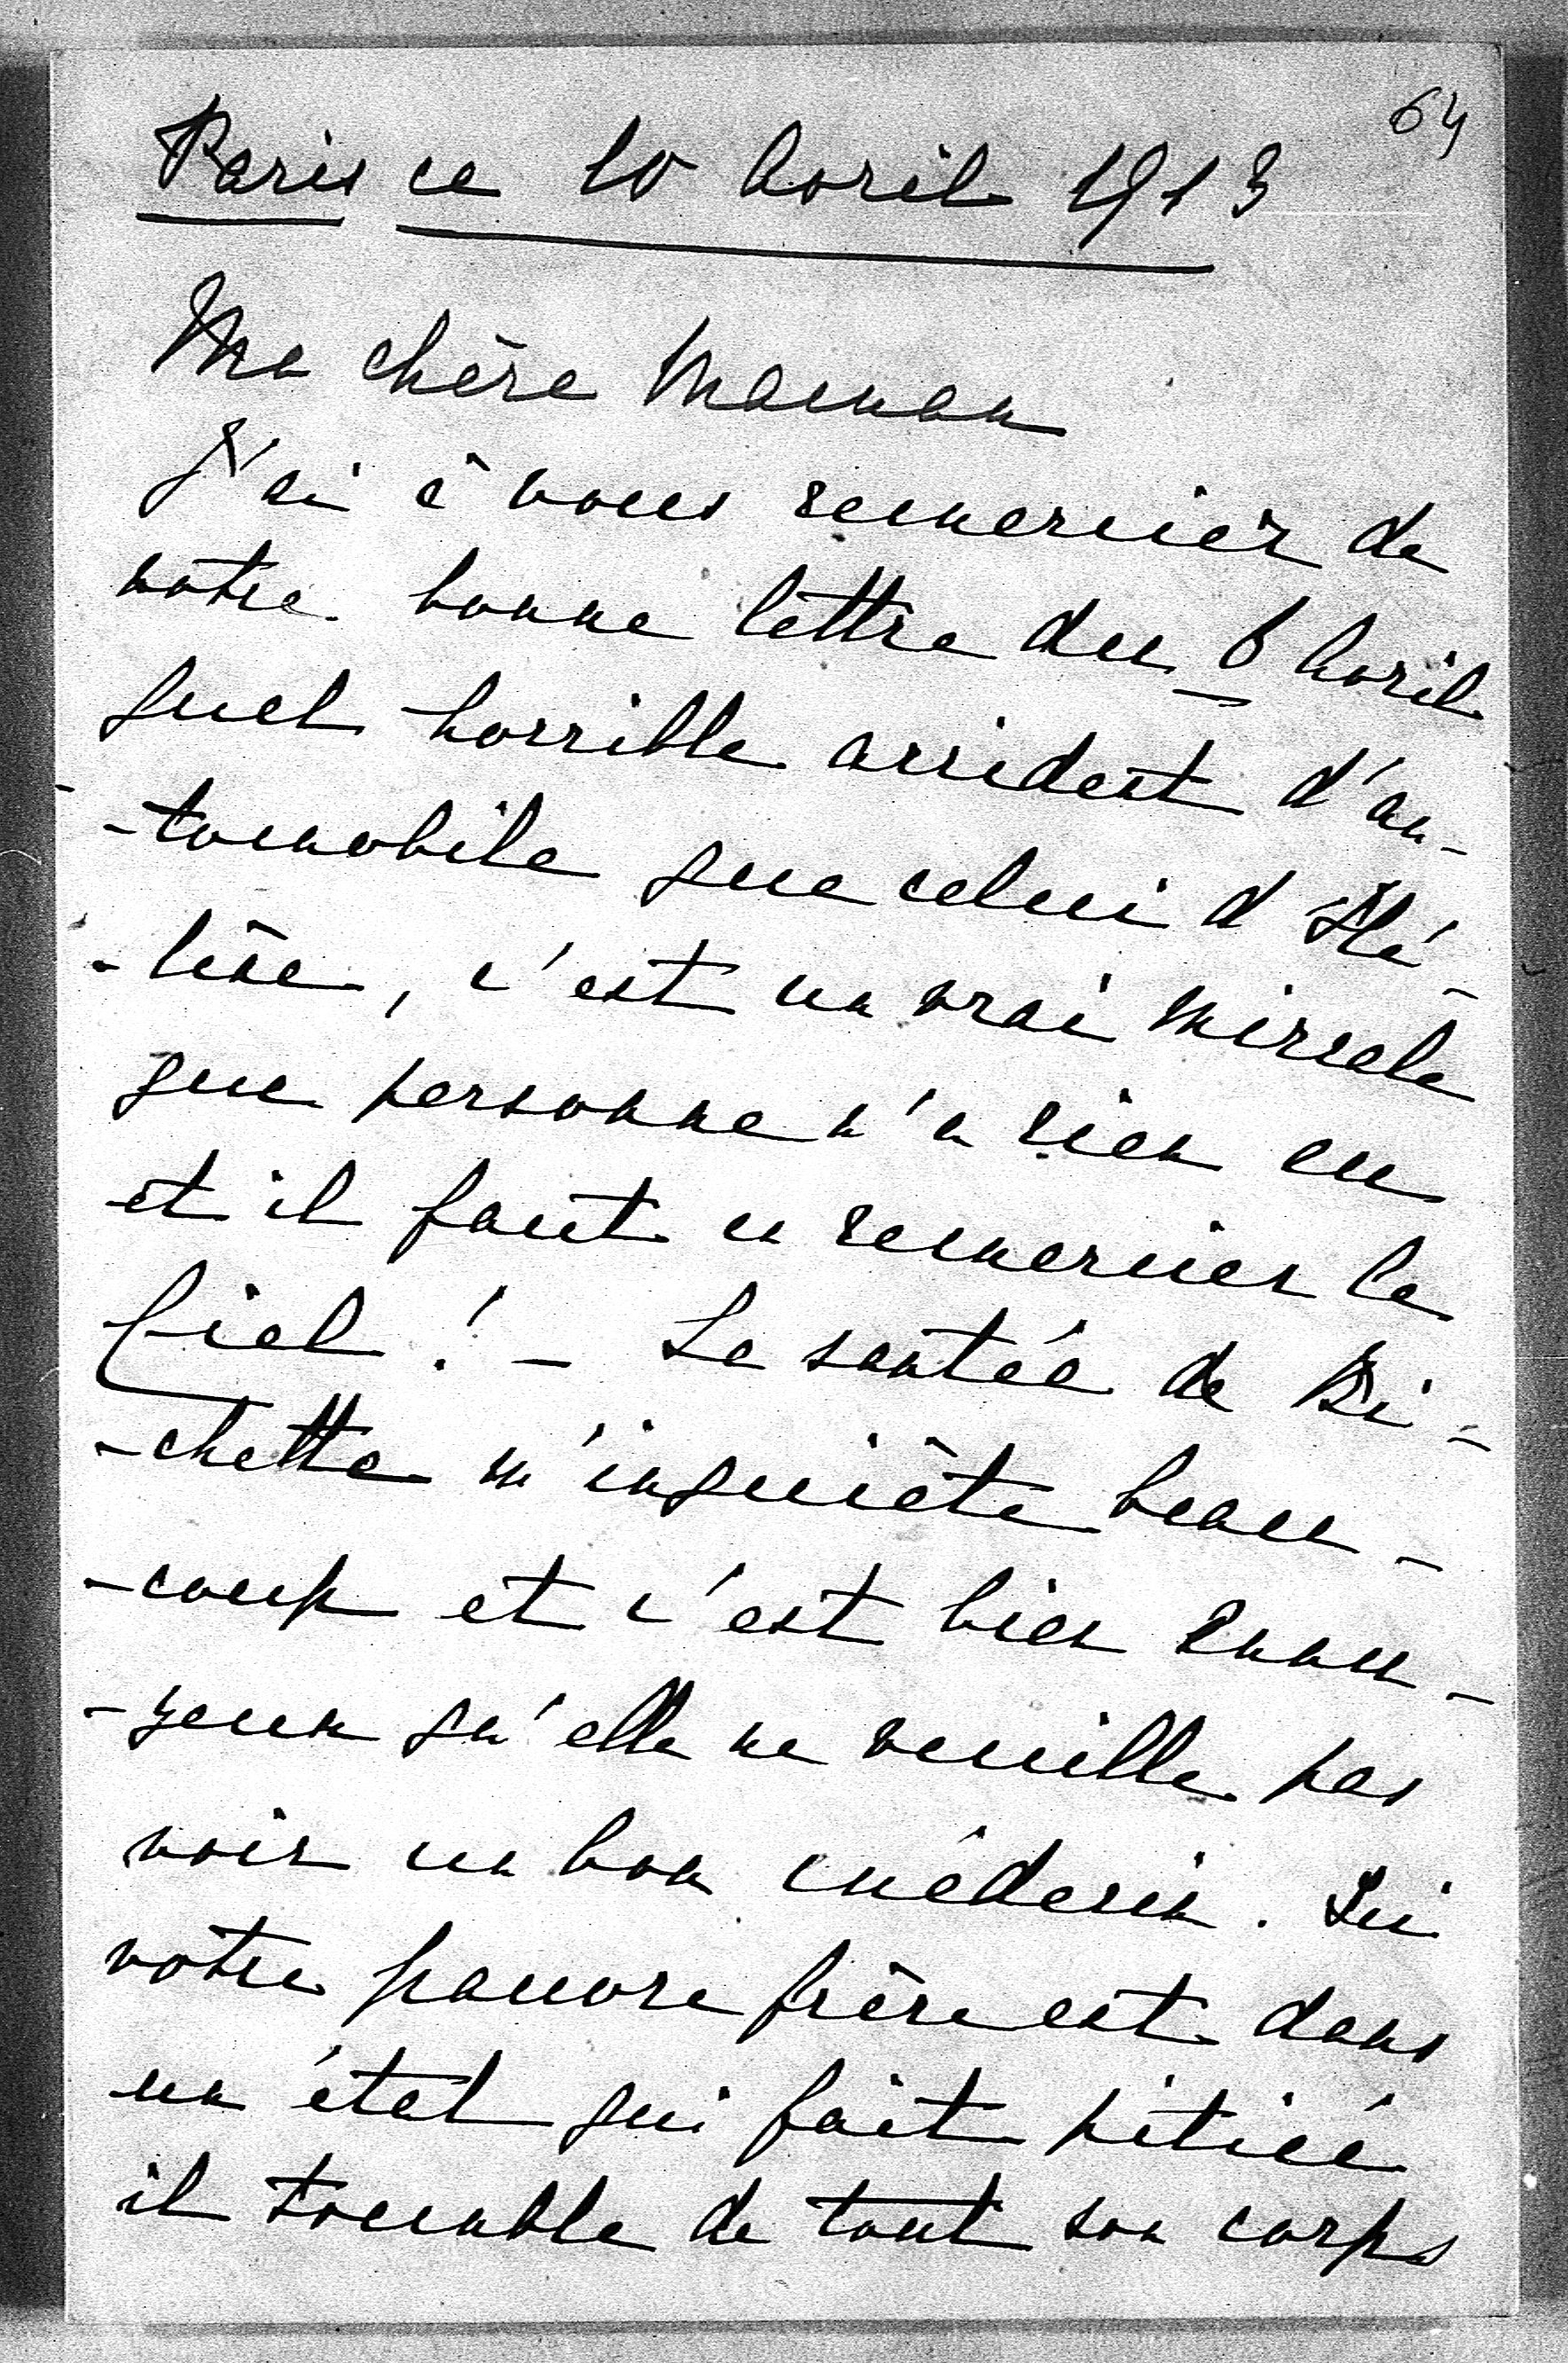 64
Paris ce 10 Avril 1913
Ma chère Maman
J'ai à vous remercier de
votre bonne lettre du 6 Avril
quel horrible accident d'au-
-tomobile que celui d Hé-
-lène, c'est un vrai miracle
que personne n'a rien eu
et il faut en remercier le
Ciel! - La santée de Bi-
-chette m'inquiète beau-
-coup et c'est bien ennu-
-yeux qu'elle ne veuille pas
voir un bon médecin. Ici
votre pauvre frère est dans
un état qui fait pitiée
il tremble de tout son corps